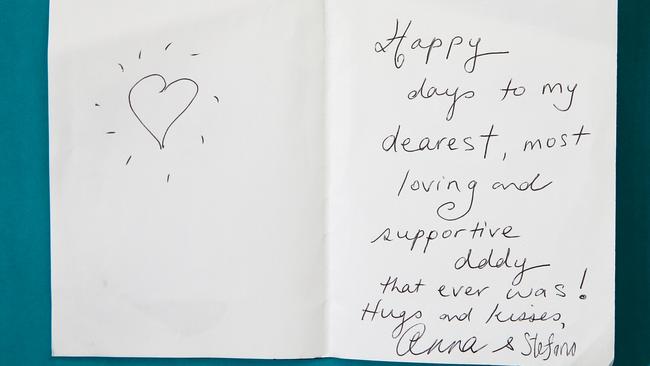 Happy
days to my
dearest, most
loving and
supportive
dddy
that ever was!
Hugs and kisses,
Anna & Stefano